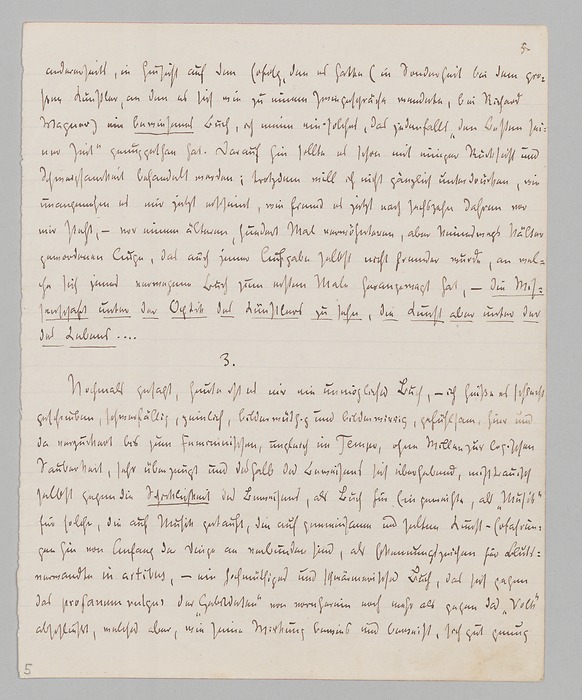 5.
andrerseits, in Hinsicht auf den Erfolg, den es hatte (in Sonderheit bei dem gro-
ßen Künstler, an den es sich wie zu einem Zwiegespräche wendete, bei Richard
Wagner) ein bewiesenes Buch, ich meine ein solches, das jedenfalls „den Besten sei-
ner Zeit“ genuggethan hat. Darauf hin sollte es schon mit einiger Rücksicht und
Schweigsamkeit behandelt werden; trotzdem will ich nicht gänzlich unterdrücken, wie
unangenehm es mir jetzt erscheint, wie fremd es jetzt nach sechzehn Jahren vor
mir steht, – vor einem älteren, hundert Mal verwöhnteren, aber keineswegs kälter
gewordenen Auge, das auch jener Aufgabe selbst nicht fremder wurde, an wel-
che sich jenes verwegene Buch zum ersten Male herangewagt hat, – die Wis-
senschaft unter der Optik des Künstlers zu sehn, die Kunst aber unter der
des Lebens ....
3.
Nochmals gesagt, heute ist es mir ein unmögliches Buch, – ich heiße es schlecht
geschrieben, schwerfällig, peinlich, bilderwüthig und bilderwirrig, gefühlsam, hier und
da verzuckert bis zum Femininischen, ungleich im Tempo, ohne Willen zur logischen
Sauberkeit, sehr überzeugt und deshalb des Beweisens sich überhebend, mißtrauisch
selbst gegen die Schicklichkeit des Beweisens, als Buch für Eingeweihte, als „Musik“
für Solche, die auf Musik getauft, die auf gemeinsame und seltene Kunst-Erfahrun-
gen hin von Anfang der Dinge an verbunden sind, als Erkennungszeichen für Bluts-
verwandte in artibus, – ein hochmüthiges und schwärmerisches Buch, das sich gegen
das profanum vulgus der „Gebildeten“ von vornherein noch mehr als gegen das „Volk“
abschließt, welches aber, wie seine Wirkung bewies und beweist, sich gut genug
5